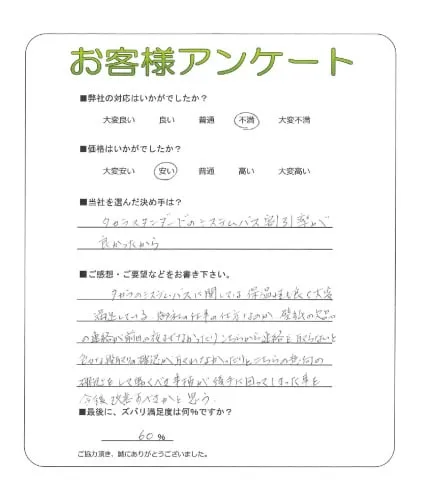 お客様アンケート
■弊社の対応はいかがでしたか?
大変良い 良い 普通 不満 大変不満
■価格はいかがでしたか?
大変安い 安い 普通 高い 大変高い
■当社を選んだ決め手は?
タカラスタンダードのシステムバス割引率が
良かったから
■ご感想・ご要望などをお書き下さい。
タカラのシステムバスに関しては保温性も良く大変
満足している 御社の仕事の仕方なのか 壁紙の
の連絡が前日の夜までなかったりこちらから連絡を取らないと
段取りの確認が取れなかったりとこちらの
をして動くべき事柄が後手に回ってしまった事を
今後改善すべきかと思う
■最後に、ズバリ満足度は何%ですか?
60 %
ご協力頂き、誠にありがとうございました。